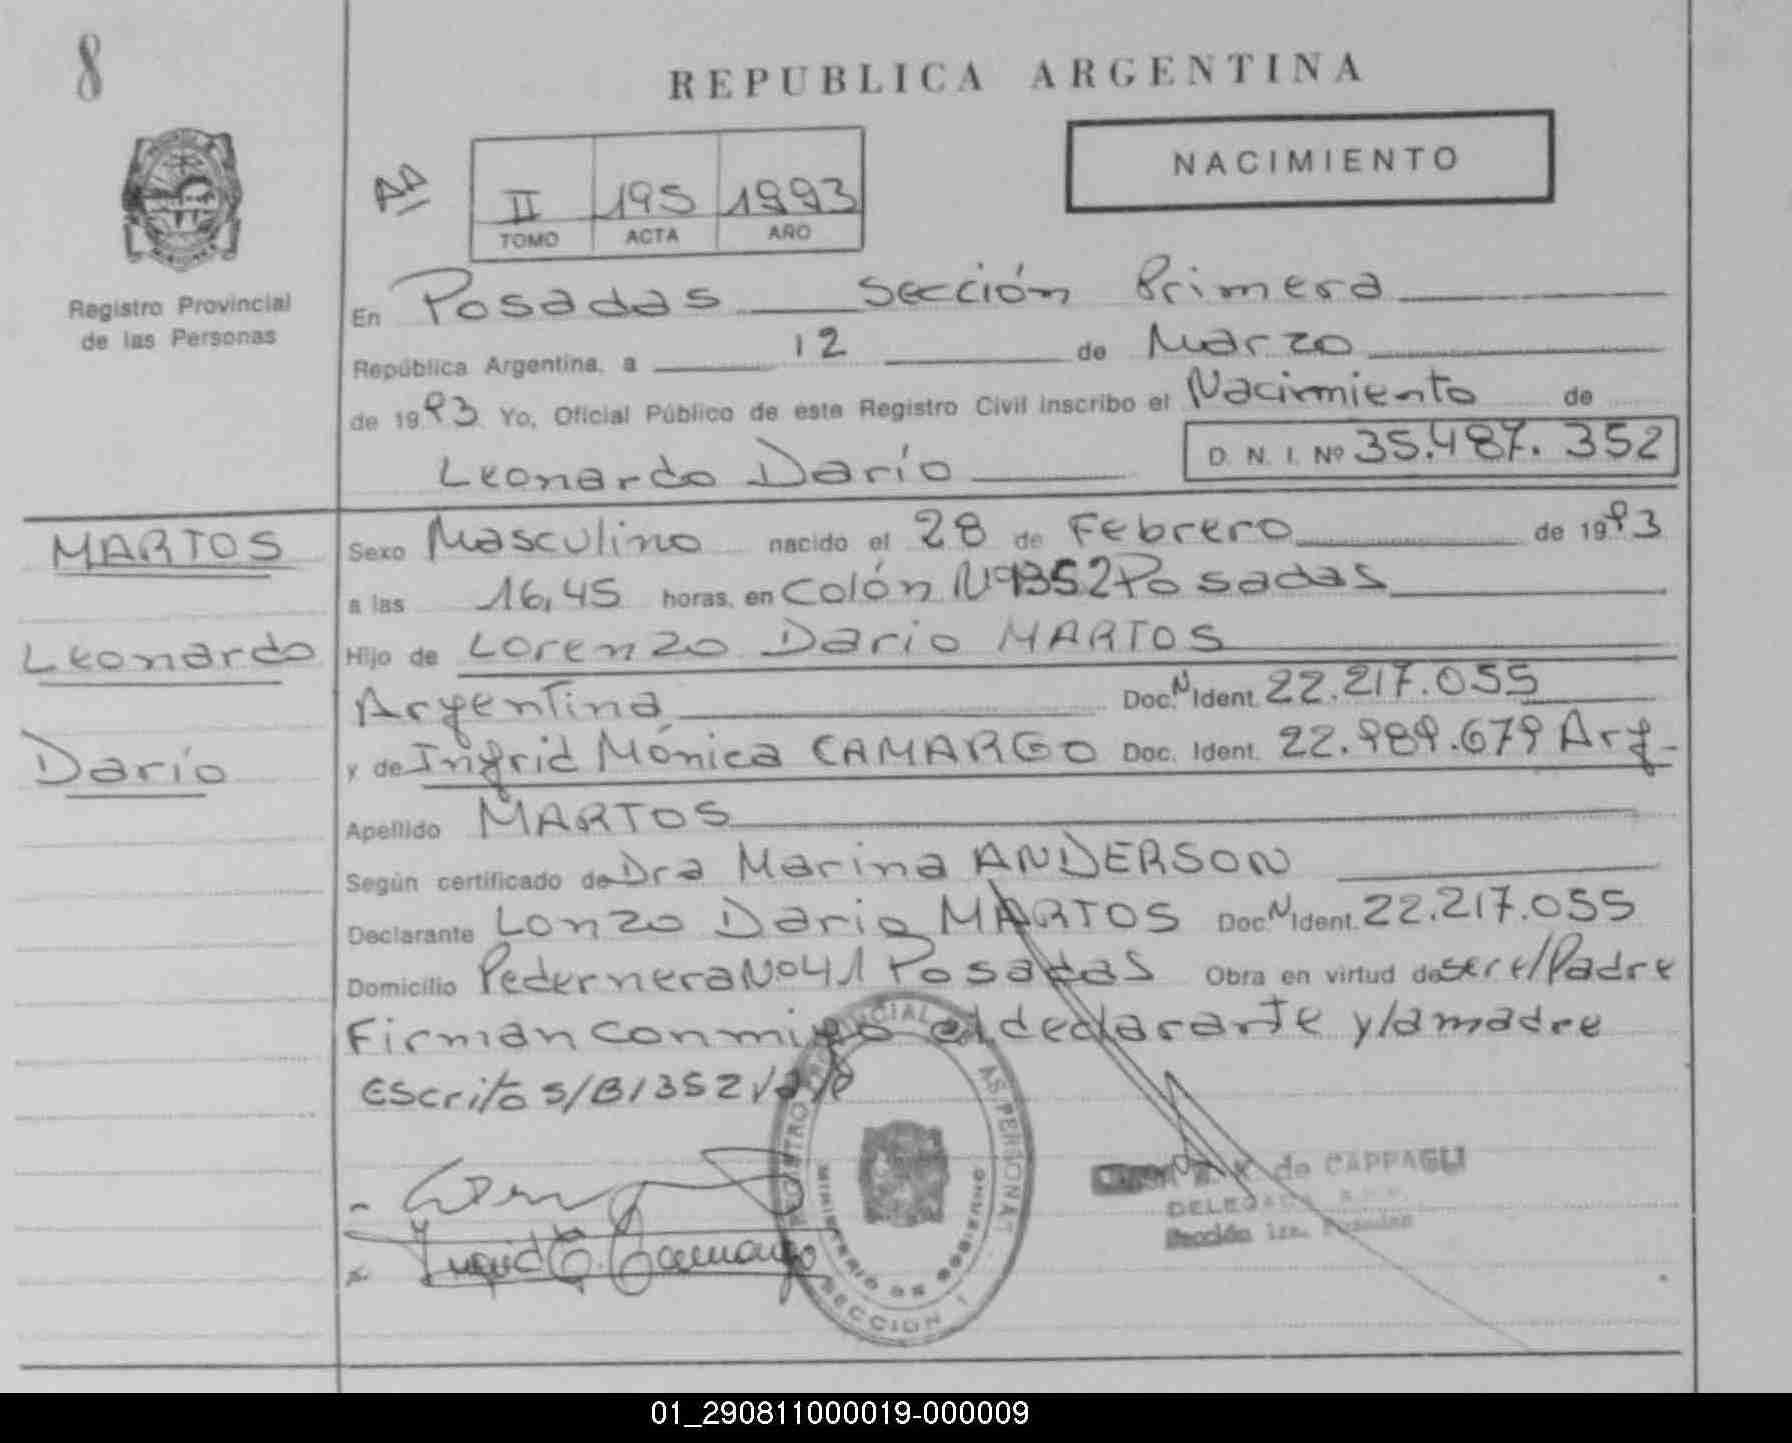 8
REPUBLICA ARGENTINA
NACIMIENTO
II 195 1993
TOMO ACTA AÑO
Registro Provincial
de las Personas
En Posadas Sección Primera
República Argentina, a 12 de Marzo
de 1993 Yo, Oficial Público de este Registro Civil inscribo el Nacimiento de
Leonardo Darío D. N. I. Nº 35.487.352
MARTOS
Leonardo
Darío
Sexo Masculino nacido el 28 de Febrero de 1993
a las 16,45 horas, en Colón Nº1352 Posadas
Hijo de Lorenzo Dario MARTOS
Argentina Doc. N Ident. 22.217.055
y de Ingrid Mónica CAMARGO Doc. Ident. 22.989.679 Arg
Apellido MARTOS
Según certificado de Dra Marina ANDERSON
Declarante Lonzo Dario MARTOS Doc. N Ident. 22.217.055
Domicilio Pedernera Nº 41 Posadas Obra en virtud de ser e/Padre
Firman conmigo el declarante y/a madre
Escrito s/B/352
REGISTRO PROVINCIAL AS PERSONAS
MINISTERIO DE GOBIERNO
SECCION 1
de CAPPAGLI
DELEGADA
Sección 1ra. Posadas
Ingrid C. Camargo
01_290811000019-000009